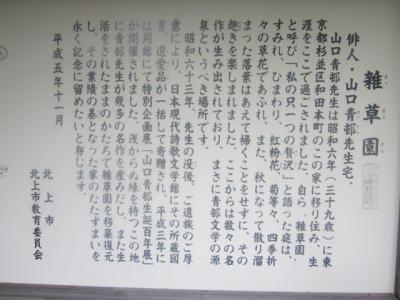 雑草園
俳人・山口青邨先生宅。
山口青邨先生は昭和六年(三十九歳)に東
京都杉並区和田本町のこの家に移り住み、生
涯をここで過ごされました。自ら「雑草園」
と呼び「私の只一つの贅沢」と語った庭は、
すみれ、ひまわり、紅粉花、菊等々、四季折
々の草花であふれ、また、秋になって散り溜
まった落葉はあえて掃くことをせずに、その
趣きを楽しまれました。ここからは数々の名
作が生み出されており、まさに青邨文学の源
泉というべき場所です。
昭和六十三年、先生の没後、ご遺族のご厚
意により、日本現代詩歌文学館にその所蔵図
書、遺愛品が一括して寄贈され、平成三年に
は同館にて特別企画展「山口青邨生誕百年展」
が開催されました。浅からぬ縁を持つこの地
に青邨先生が幾多の名作を産みだし、また生
活をされたままのかたちで雑草園を移築復元
し、その業績の基となった家のたたずまいを
永く記念に留めたいと存じます。
平成五年十一月
北上市
北上市教育委員会